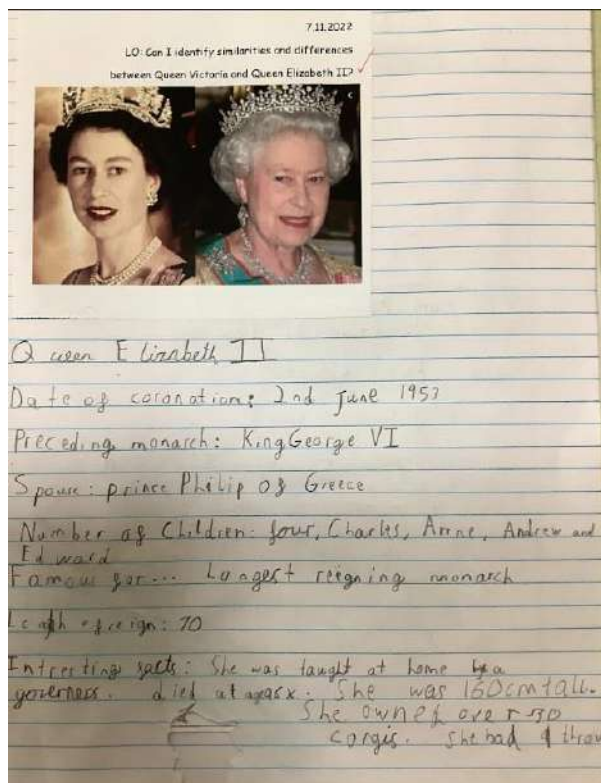 7.11.2022
LO: Can I identify similarities and differences
between Queen Victoria and Queen Elizabeth II?
Queen Elizabeth II
Date of coronation: 2nd June 1953
Preceding monarch: King George VI
Spouse: prince Philip of Greece
Number of Children: four, Charles, Anne, Andrew and
Edward
Famous for... Longest reigning monarch
of reign: 70
facts: She was taught at home by a
governess. died at She was 160cm tall.
She owned over 30
corgis. She had